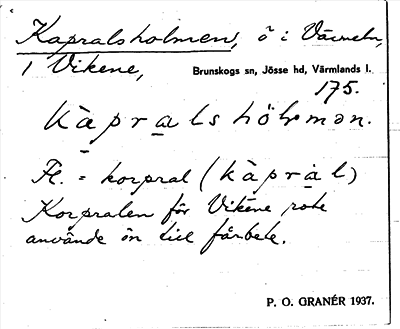 Kapralsholmen, ö i Värmeln,
1 Vikene,
Brunskogs sn, Jösse hd, Värmlands l.
175.
kàpralshöl̵mən.
F.l. = korpral (kàprál)
Korpralen för Vikene rote
använde ön till fårbete.
P. O. GRANÉR 1937.